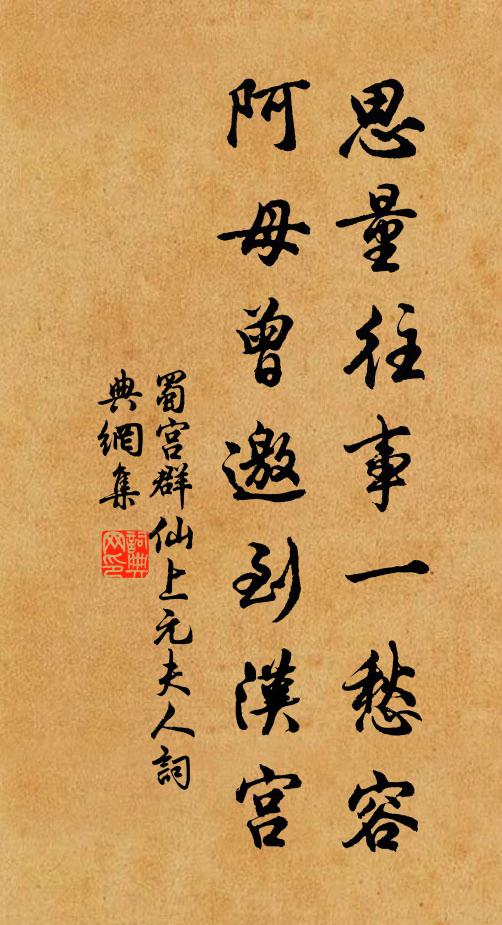 思量往事一愁容
阿母曾邀到漢宮
蜀宮群仙上元夫人詞
典網集
詞典網印